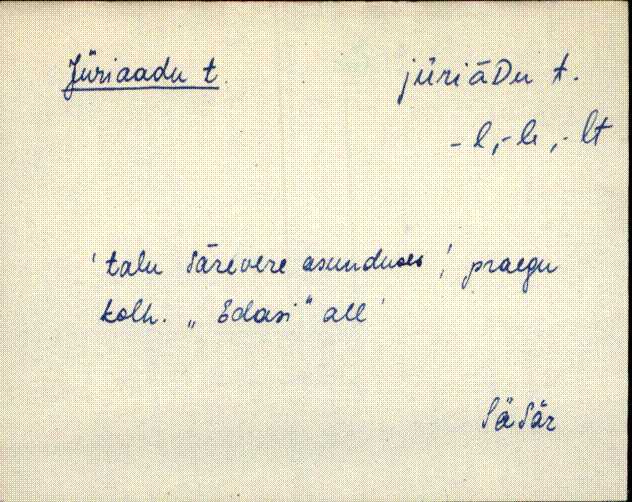 Jüriaadu t. jüriāDu t.
-l, -le, -lt
'talu Särevere asunduses', praegu
kolh. „Edasi" all'
SäSär